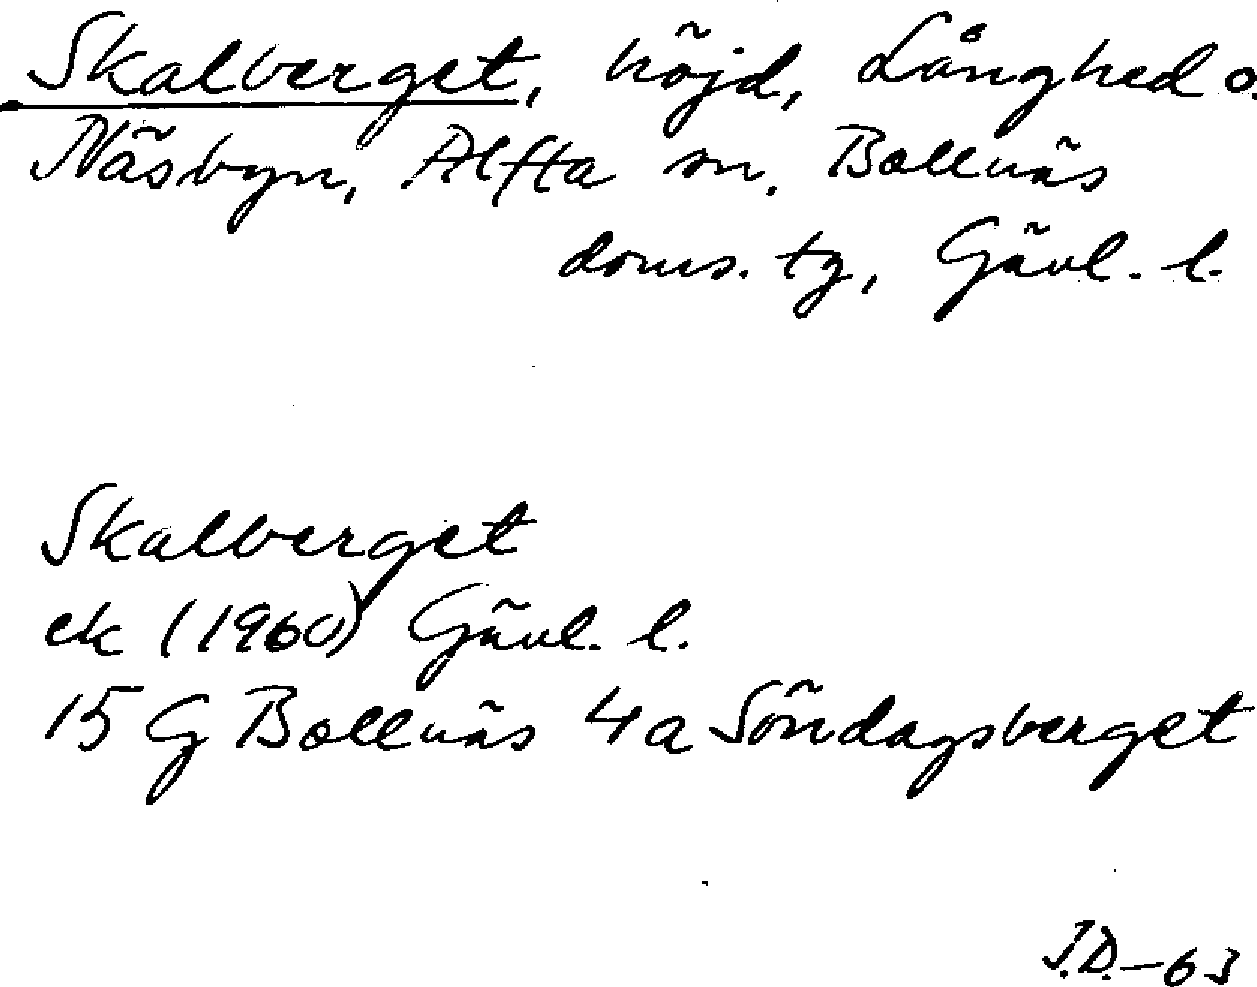 Skalberget, höjd, Långhed o.
Näsbyn, Alfta sn. Bollnäs
doms. tg, Gävl. l.
Skalberget
ek (1960) Gävl. l.
15 G Bollnäs 4a Söndagsberget
J.D.-63